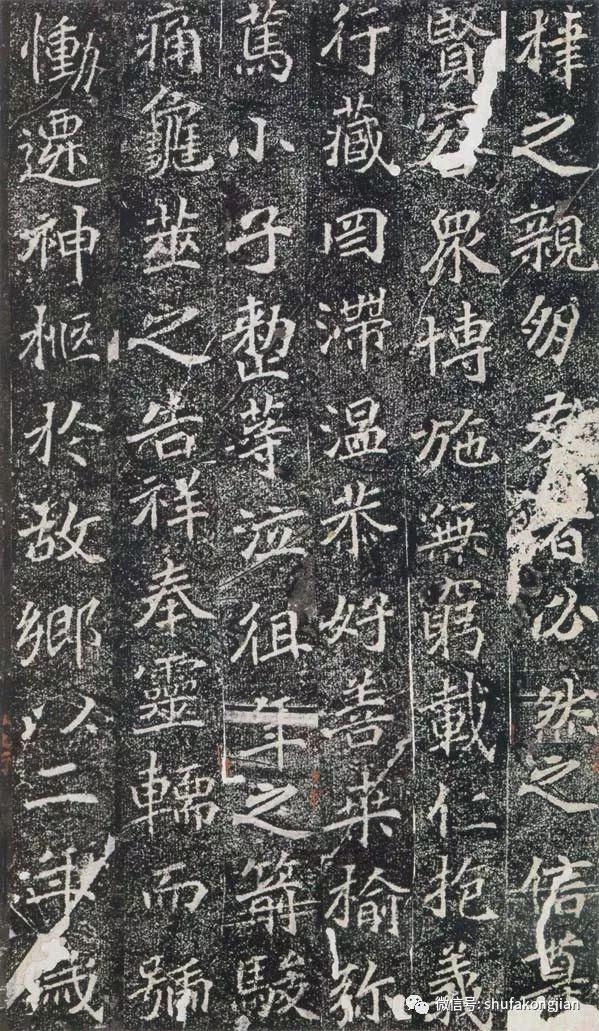 棣之親朋友有必然之信尊
賢容衆博施無窮載仁抱義
行藏罔滯温恭好善桒榆弥
篤小子整等泣徂年之箭駿
痛龜筮之告祥奉靈轜而號
慟遷神柩於故鄉以二年歲
微信号: shufakongjian